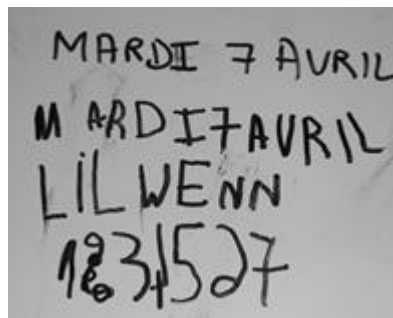 MARDI 7 AVRIL
MARDI 7 AVRIL
LILWENN